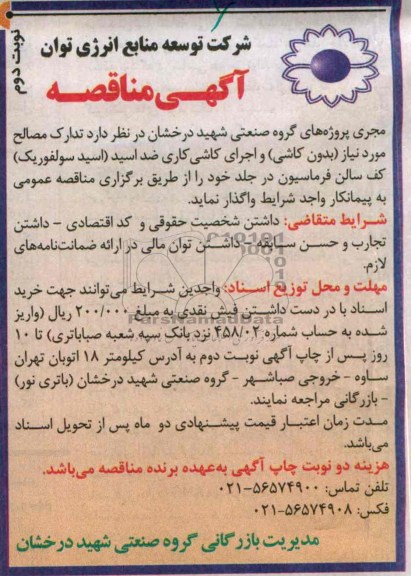 نوبت دوم
شرکت توسعه منابع انرژی توان
آگهـی مناقصـه
مجری پروژه‌های گروه صنعتی شهید درخشان در نظر دارد تدارک مصالح
مورد نیاز (بدون کاشی) و اجرای کاشی کاری ضد اسید (اسید سولفوریک)
کف سالن فرماسیون در جلد خود را از طریق برگزاری مناقصه عمومی
به پیمانکار واجد شرایط واگذار نماید.
شـرایط متقاضی: داشتن شخصیت حقوقی و کد اقتصادی - داشتن
تجارب و حسـن سـابقه - داشـتن توان مالی در ارائه ضمانت‌نامه‌های
لازم.
مهلت و محل توزیع اسـناد: واجدین شـرایط می‌توانند جهت خرید
اسـناد با در دست داشتـن فیش نقدی به مبلغ ۲۰۰/۰۰۰ ریال (واریز
شده به حساب شماره ۴۵۸/۰۲ نزد بانک سپه شعبه صباباتری) تا ۱۰
روز پـس از چاپ آگهی نوبـت دوم به آدرس کیلومتر ۱۸ اتوبان تهران
ساوه - خروجی صباشـهر - گروه صنعتی شهید درخشان (باتری نور)
- بازرگانی مراجعه نمایند.
مـدت زمان اعتبـار قیمت پیشـنهادی دو ماه پس از تحویل اسـناد
می‌باشد.
هزینه دو نوبت چاپ آگهی به‌عهده برنده مناقصه می‌باشد.
تلفن تماس: ۵۶۵۷۴۹۰۰-۰۲۱
فکس: ۵۶۵۷۴۹۰۸-۰۲۱
مدیریت بازرگانی گروه صنعتی شهید درخشان